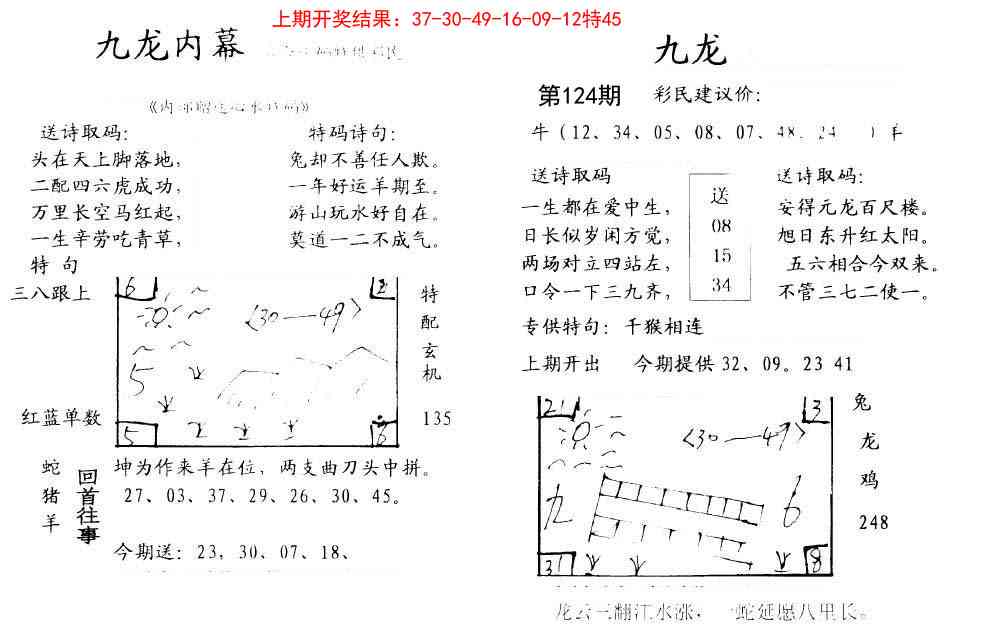 上期开奖结果：37-30-49-16-09-12特45
九龙内幕
送诗取码：
头在天上脚落地，
二配四六虎成功，
万里长空马红起，
一生辛劳吃青草，
特码诗句：
兔却不善任人欺。
一年好运羊期至。
游山玩水好自在。
莫道一二不成气。
特 句
三八跟上
红蓝单数
6
2
〈30——49〉
5
5
6
特配玄机
135
蛇
猪
羊
回首往事
坤为作来羊在位，两支曲刀头中拼。
27、03、37、29、26、30、45。
今期送：23，30、07、18、
九龙
第124期
彩民建议价：
牛（12、34、05、08、07、48、24 ）羊
送诗取码
一生都在爱中生，
日长似岁闲方觉，
两场对立四站左，
口令一下三九齐，
送
08
15
34
送诗取码：
安得元龙百尺楼。
旭日东升红太阳。
五六相合今双来。
不管三七二使一。
专供特句：千猴相连
上期开出 今期提供 32、09。23 41
21
3
〈30——49〉
九
6
31
8
兔
龙
鸡
248
龙云三翻江水涨，一蛇延愿八里长。